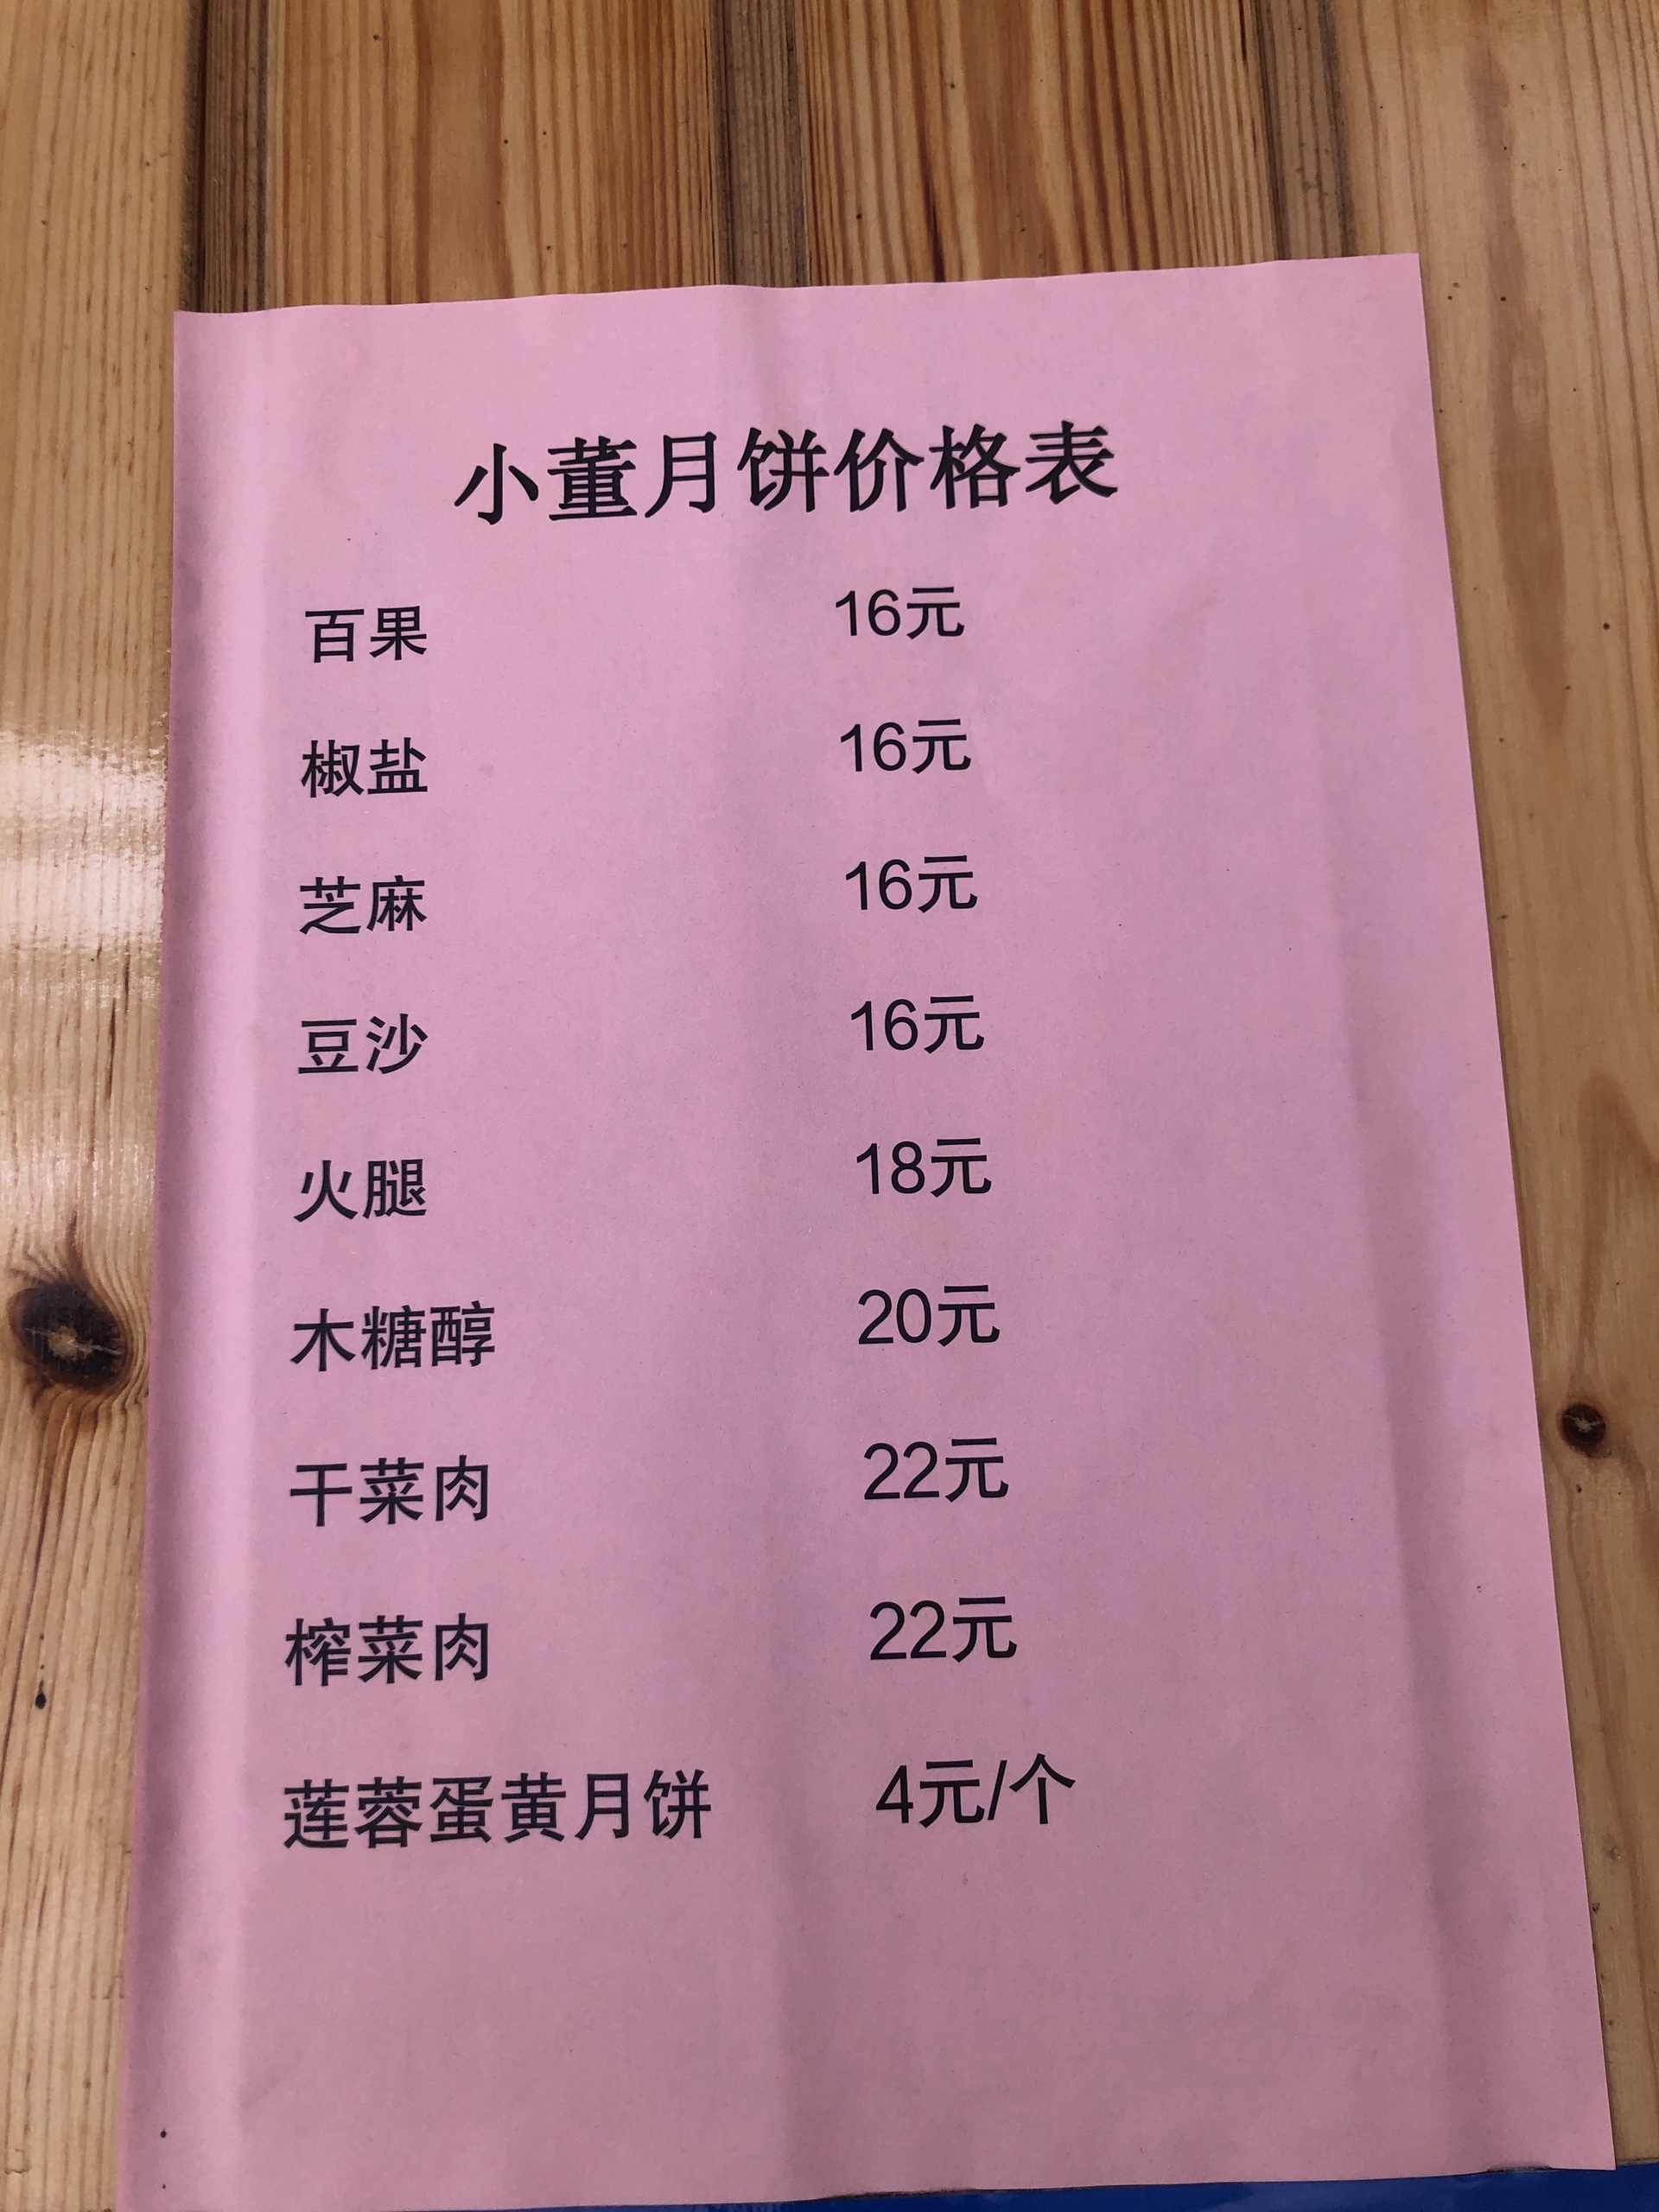 小董月饼价格表
百果 16元
椒盐 16元
芝麻 16元
豆沙 16元
火腿 18元
木糖醇 20元
干菜肉 22元
榨菜肉 22元
莲蓉蛋黄月饼 4元/个